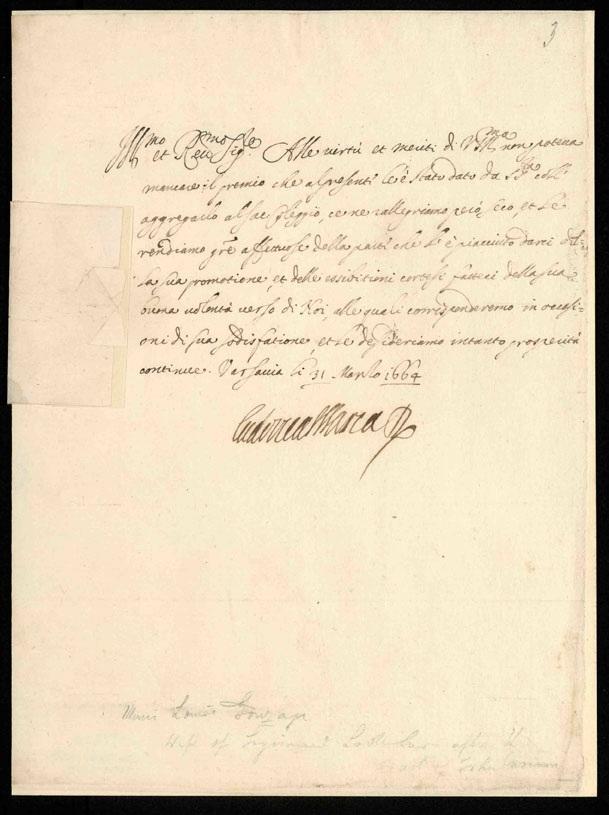 3
Ill.mo et Re.mo Sig.re Alle virtù et meriti di V.S. Ill.ma non poteua
mancare il premio che al presente le è stato dato da S. S.tà coll'
aggregarlo al Sac. Colleggio, ce ne rallegriamo seco, et Le
rendiamo gr.e affettuose della parte che Le è piacciuto darci del
la sua promotione, et delle essibitioni cortesi fatteci della sua
buona volontà verso di Noi, alle quali corrisponderemo in occasi-
oni di sua sodisfatione, et Le desideriamo intanto prosperità
continue. Varsauia li 31 Marzo 1664
Ludovica Maria R
Marie Louise Gonzaga
Wife of Sigismund
John